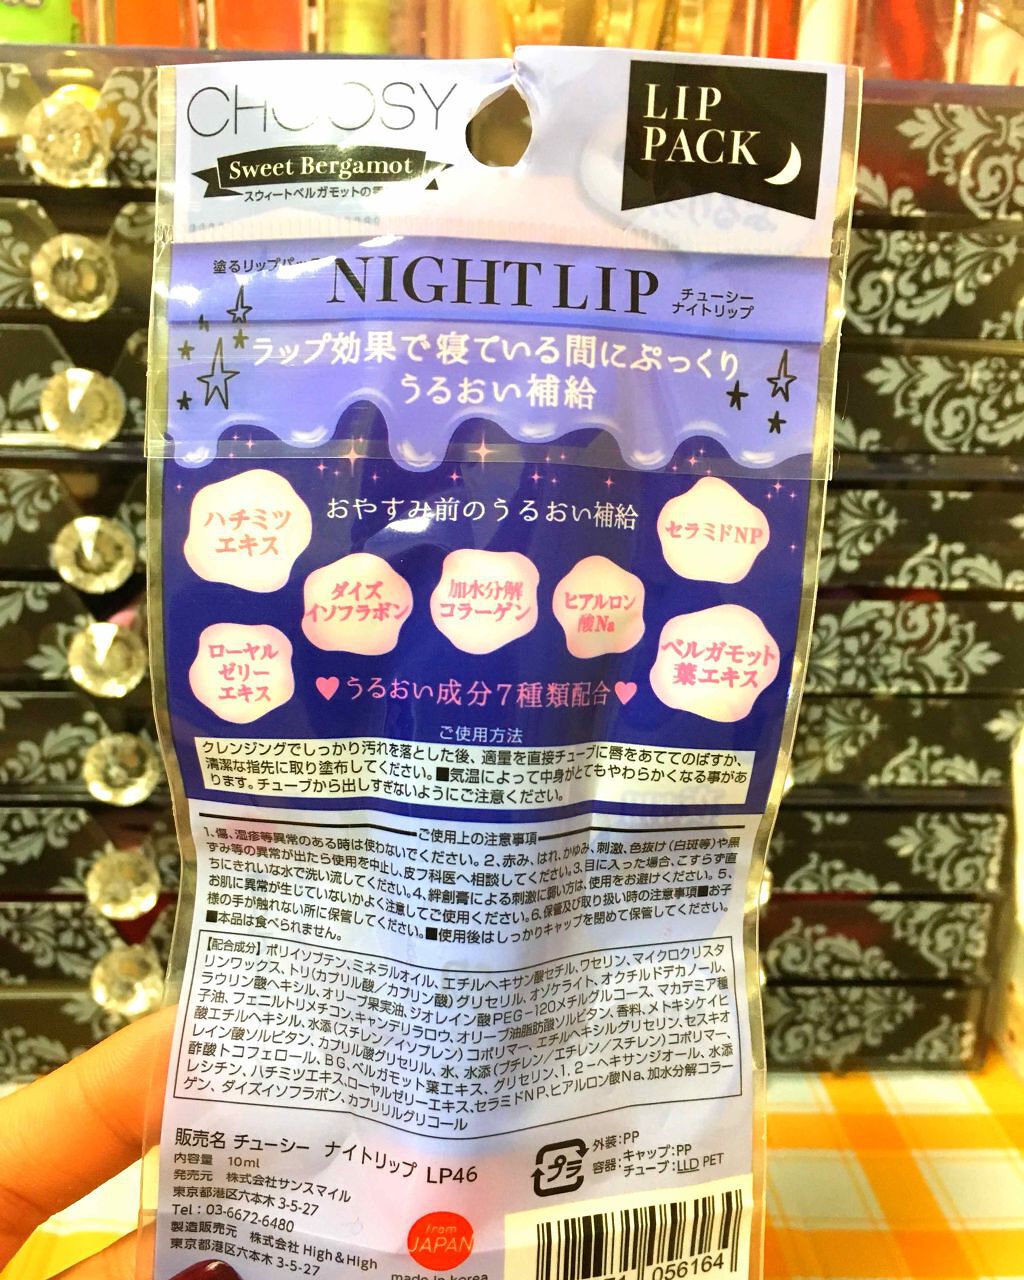 CHOOSY
LIP
PACK
Sweet Bergamot
スウィートベルガモットの
塗るリップパック
NIGHT LIP
チューシー
ナイトリップ
ラップ効果で寝ている間にぷっくり
うるおい補給
おやすみ前のうるおい補給
ハチミツ
エキス
セラミドNP
ダイズ
イソフラボン
加水分解
コラーゲン
ヒアルロン
酸Na
ローヤル
ゼリー
エキス
ベルガモット
葉エキス
♥うるおい成分7種類配合♥
ご使用方法
クレンジングでしっかり汚れを落とした後、適量を直接チューブに唇をあててのばすか、
清潔な指先に取り塗布してください。■気温によって中身がとてもやわらかくなる事があ
ります。チューブから出しすぎないようにご注意ください。
ご使用上の注意事項
1、傷、湿疹等異常のある時は使わないでください。2、赤み、はれ、かゆみ、刺激、色抜け(白斑等)や黒
ずみ等の異常が出たら使用を中止し、皮フ科医へ相談してください。3、目に入った場合、こすらず直
ちにきれいな水で洗い流してください。4、絆創膏による刺激に弱い方は、使用をお避けください。5、
お肌に異常が生じていないかよく注意してご使用ください。6、保管及び取り扱い時の注意事項■お子
様の手が触れない所に保管してください。■使用後はしっかりキャップを閉めて保管してください。
■本品は食べられません。
【配合成分】ポリイソブテン、ミネラルオイル、エチルヘキサン酸セチル、ワセリン、マイクロクリスタ
リンワックス、トリ(カプリル酸/カプリン酸)グリセリル、オゾケライト、オクチルドデカノール、
ラウリン酸ヘキシル、オリーブ果実油、ジオレイン酸PEG-120メチルグルコース、マカデミア種
子油、フェニルトリメチコン、キャンデリラロウ、オリーブ油脂肪酸ソルビタン、香料、メトキシケイヒ
酸エチルヘキシル、水添(スチレン/イソプレン)コポリマー、エチルヘキシルグリセリン、セスキオ
レイン酸ソルビタン、カプリル酸グリセリル、水、水添(ブチレン/エチレン/スチレン)コポリマー、
酢酸トコフェロール、BG、ベルガモット葉エキス、グリセリン、1,2-ヘキサンジオール、水添
レシチン、ハチミツエキス、ローヤルゼリーエキス、セラミドNP、ヒアルロン酸Na、加水分解コラー
ゲン、ダイズイソフラボン、カプリリルグリコール
販売名 チューシー ナイトリップ LP46
内容量 10ml
発売元 株式会社サンスマイル
東京都港区六本木 3-5-27
Tel：03-6672-6480
製造販売元 株式会社 High＆High
東京都港区六本木 3-5-27
プラ
外装：PP
容器：キャップ：PP
チューブ：LLD PET
from
JAPAN
made in korea
056164